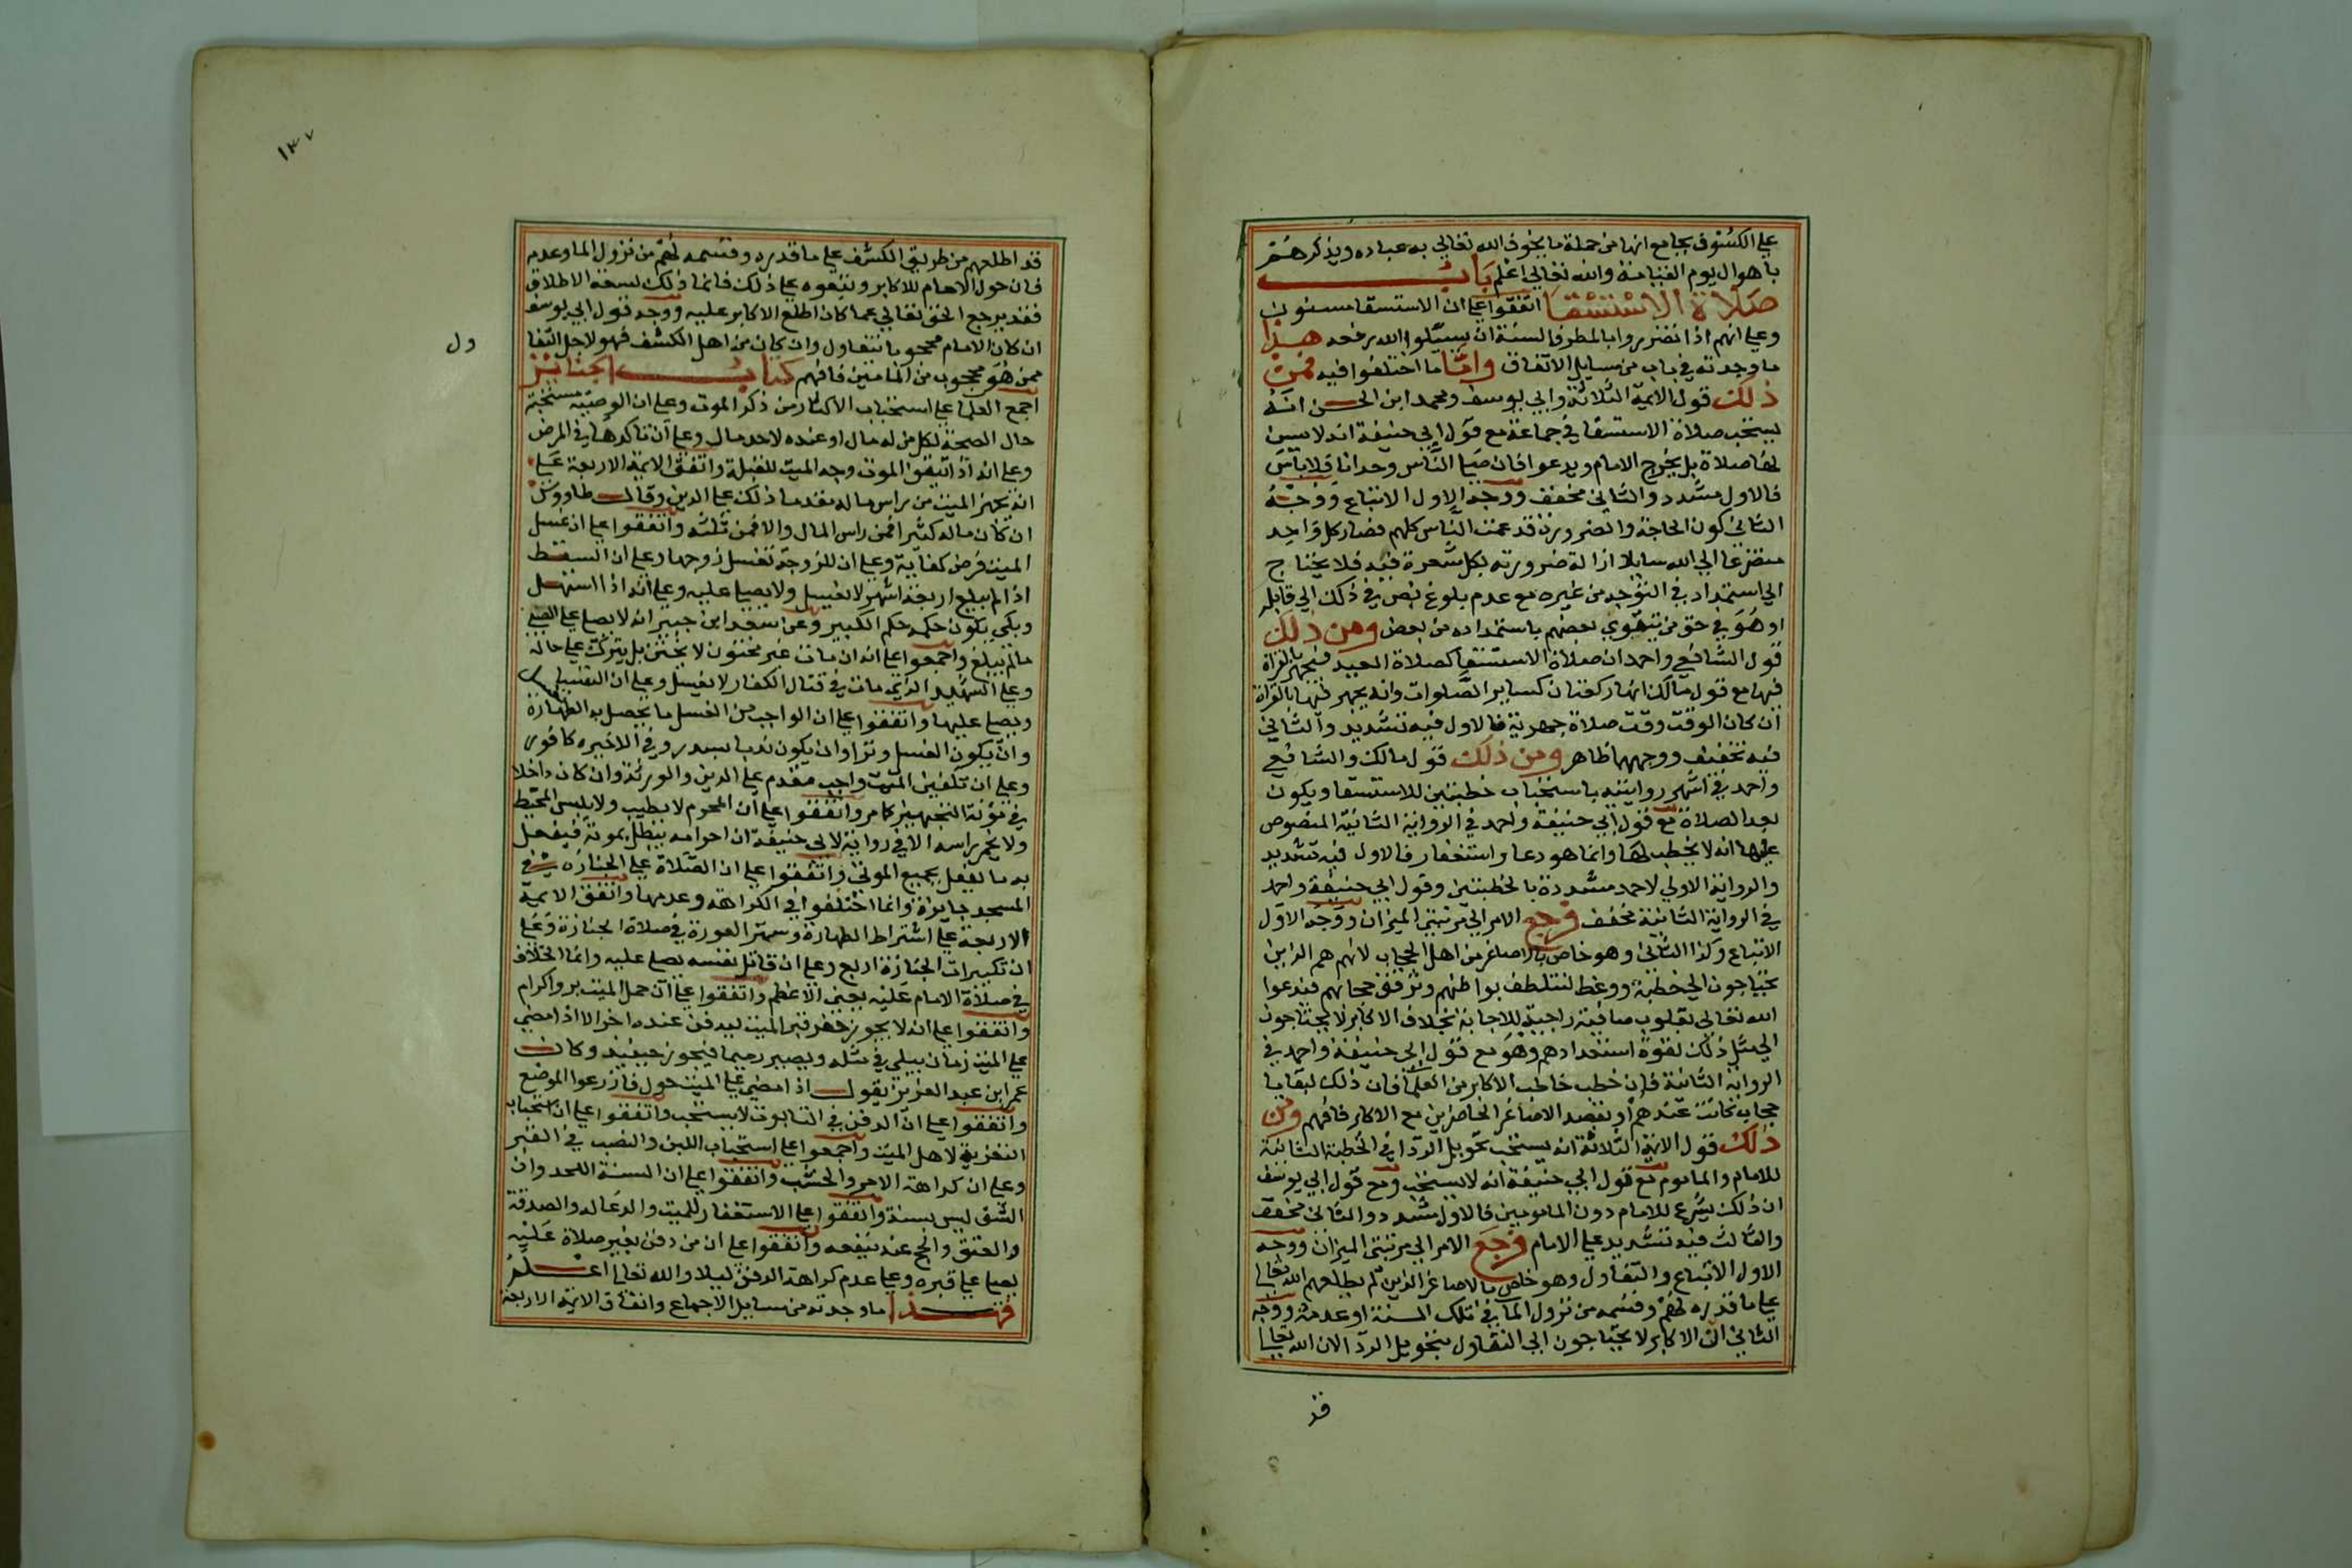 علي الكسوف بجامع انها من جملة ما يخوف الله تعالي به عباده ويذكرهم
باهوال يوم القيامة والله تعالي اعلم باب
صلاة الاستسقا اتفقوا علي ان الاستسقا مسنون
وعلي انهم اذا تضرروا بالمطر فالسنة ان يسئلوا الله رفعه هذا
ما وجدته في باب من مسايل الاتفاق واما ما اختلفوا فيه فمن
ذلك قول الايمة الثلاثة وابي يوسف ومحمد ابن الحسن انه
يستحب صلاة الاستسقا في جماعة مع قول ابي حنيفة انه لا يسن
لها صلاة بل يخرج الامام ويدعوا فان صلي الناس وحدانا فلا باس
فالاول مشدد والثاني مخفف ووجه الاول الاتباع ووجه
الثاني كون الحاجة والضرورة قد عمت الناس كلهم فصار كل واحد
متضرعا الي الله سايلا ازالة ضرورته بكل شعرة فيه فلا يحتاج
الي استمداد في التوجه من غيره مع عدم بلوغ نص في ذلك الي قايله
او هو في حق من يتقوي بعضهم باستمداده من بعض ومن ذلك
قول الشافعي واحمد ان صلاة الاستسقا كصلاة العيد فيجهر بالقراة
فيها مع قول مالك انها ركعتان كساير الصلوات وانه يجهر فيها بالقراة
ان كان الوقت وقت صلاة جهرية فالاول فيه تشديد والثاني
فيه تخفيف ووجههما ظاهر ومن ذلك قول مالك والشافعي
واحمد في اشهر روايتيه باستحباب خطبتين للاستسقا ويكون
بعد الصلاة مع قول ابي حنيفة واحمد في الرواية الثانية المنصوص
عليها انه لا يخطب لها وانما هو دعا واستغفار فالاول فيه تشديد
والرواية الاولي لاحمد مشددة بالخطبتين وقول ابي حنيفة واحمد
في الرواية الثانية مخفف فرجع الامر الي مرتبتي الميزان ووجه الاول
الاتباع وكذا الثاني وهو خاص بالاصاغر من اهل الحجاب لانهم هم الذين
يحتاجون الي خطبة ووعظ لتتلطف بواطنهم وترقق حجابهم فيدعوا
الله تعالي بقلوب صافية راجية للاجابة بخلاف الاكابر لا يحتاجون
الي مثل ذلك لقوة استعدادهم وهو مع قول ابي حنيفة واحمد في
الرواية الثانية فان خطب خاطب الاكابر من العلما فان ذلك لبقايا
حجاب كانت عندهم او بقصد الاصاغر الحاضرين مع الاكابر فافهم ومن
ذلك قول الايمة الثلاثة انه يستحب تحويل الردا في الخطبة الثانية
للامام والماموم مع قول ابي حنيفة انه لا يستحب ومع قول ابي يوسف
ان ذلك يشرع للامام دون المامومين فالاول مشدد والثاني مخفف
والثالث فيه تشديد علي الامام فرجع الامر الي مرتبتي الميزان ووجه
الاول الاتباع والتفاول وهو خاص بالاصاغر الذين لم يطلعهم الله تعالي
علي ما قدره لهم وقسمه من نزول الما في تلك السنة او عدمه ووجه
الثاني ان الاكابر لا يحتاجون الي التفاول بتحويل الردا لان الله تعالي
قد
١٣٧
قد اطلعهم من طريق الكشف علي ما قدره وقسمه لهم من نزول الما وعدمه
فان حول الامام للاكابر وتبعوه علي ذلك فانما ذلك لسعة الاطلاق
فقد يرجع الحق تعالي عما كان اطلع الاكابر عليه ووجه قول ابي يوسف
ان كان الامام محجوبا تفاول وان كان من اهل الكشف فهو لاجل التفا
ول
ممن هو محجوب من المامين فافهم كتاب الجنايز
اجمع العلما علي استحباب الاكثار من ذكر الموت وعلي ان الوصية مستحبة
حال الصحة لكل من له مال او عنده لاحد مال وعلي ان تاكدها في المرض
وعلي انه اذا تيقنوا الموت وجه الميت للقبلة واتفق الايمة الاربعة علي
انه يجهز الميت من راس ماله مقدما ذلك علي الدين وقال طاووس
ان كان ماله كثيرا فمن راس المال والا فمن ثلثه واتفقوا علي ان غسل
الميت فرض كفاية وعلي ان للزوجة تغسل زوجها وعلي ان السقط
اذا لم يبلغ اربعة اشهر لا يغسل ولا يصلي عليه وعلي انه اذا استهل
وبكي يكون حكمه حكم الكبير وعن سعيد ابن جبير انه لا يصلي علي الصبي
ما لم يبلغ واجمعوا علي انه ان مات غير مختون لا يختن بل يترك علي حاله
وعلي الشهيد الذي مات في قتال الكفار لا يغسل وعلي ان النفسا تغسل
ويصلي عليها واتفقوا علي ان الواجب من الغسل ما يحصل به الطهارة
وان يكون الغسل وترا وان يكون ندبا بسدر وفي الاخيره كافور
وعلي ان تكفين الميت واجب مقدم علي الدين والورثة وان كان داخلا
في مؤنة التجهيز كما مر واتفقوا علي ان المحرم لا يطيب ولا يلبس المخيط
ولا يخمر راسه الا في رواية لابي حنيفة ان احرامه يبطل بموته فيفعل
به ما يفعل بجميع الموتي واتفقوا علي ان الصلاة علي الجنازه في
المسجد جايزة وانما اختلفوا في الكراهة وعدمها واتفق الايمة
الاربعة علي اشتراط الطهارة وستر العورة في صلاة الجنازة وعلي
ان تكبيرات الجنازة اربع وعلي ان قاتل نفسه يصلي عليه وانما الخلاف
في صلاة الامام عليه يعني الاعظم واتفقوا علي ان حمل الميت بر واكرام
واتفقوا علي انه لا يجوز حفر قبر الميت ليدفن عنده اخر الا اذا مضي
علي الميت زمان يبلي في مثله ويصير رميما فيجوز حينيذ وكان
عمر ابن عبد العزيز يقول اذا مضي علي الميت حول فازرعوا الموضع
واتفقوا علي ان الدفن في التابوت لا يستحب واتفقوا علي استحباب
التعزية لاهل الميت واجمعوا علي استحباب اللبن والنصب في القبر
وعلي ان كراهة الاجر والخشب واتفقوا علي ان السنة اللحد وان
الشق ليس بسنة واتفقوا علي الاستغفار للميت والدعا له والصدقة
والعتق والحج عنه ينفعه واتفقوا علي ان من دفن بغير صلاة عليه
يصلي علي قبره وعلي عدم كراهة الدفن ليلا والله تعالي اعلم
فهذا ما وجدته من مسايل الاجماع واتفاق الايمة الاربعة